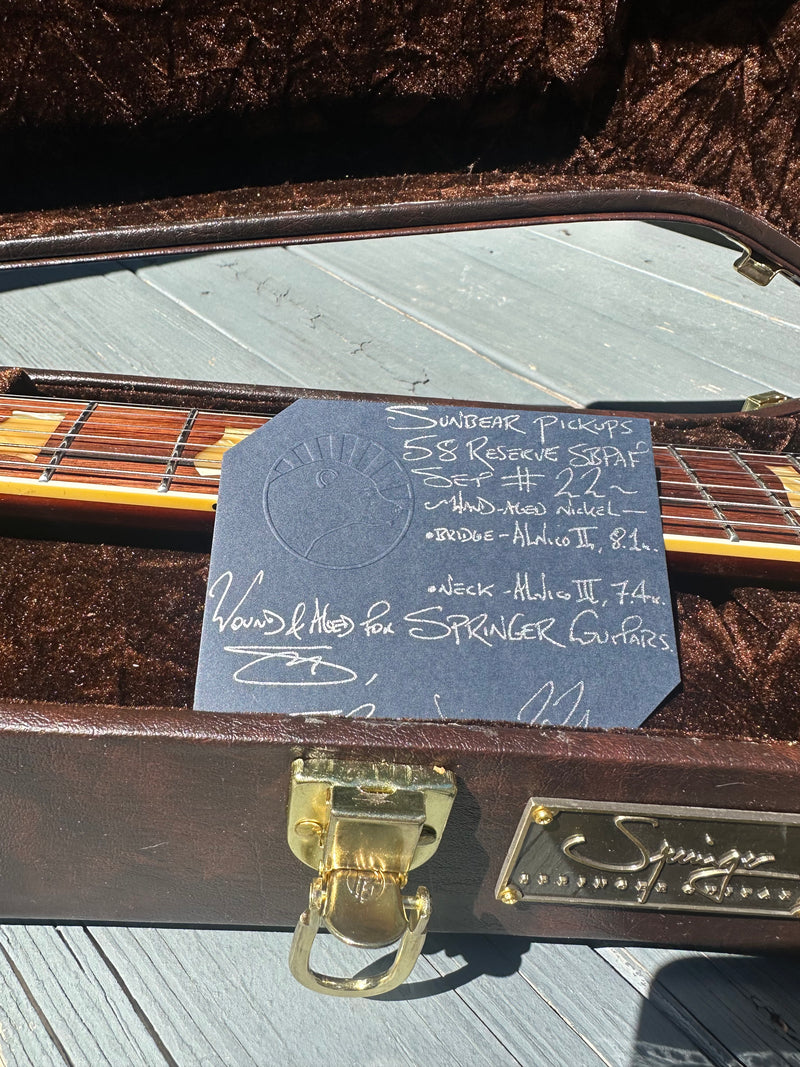 SUNBEAR PICKUPS
58 RESERVE SBPAF
SEP # 22~
~HAND-AGED NICKEL—
•BRIDGE - ALNICO II, 8.1K.
•NECK - ALNICO III, 7.4K.
WOUND & AGED FOR SPRINGER GUITARS.
Springer